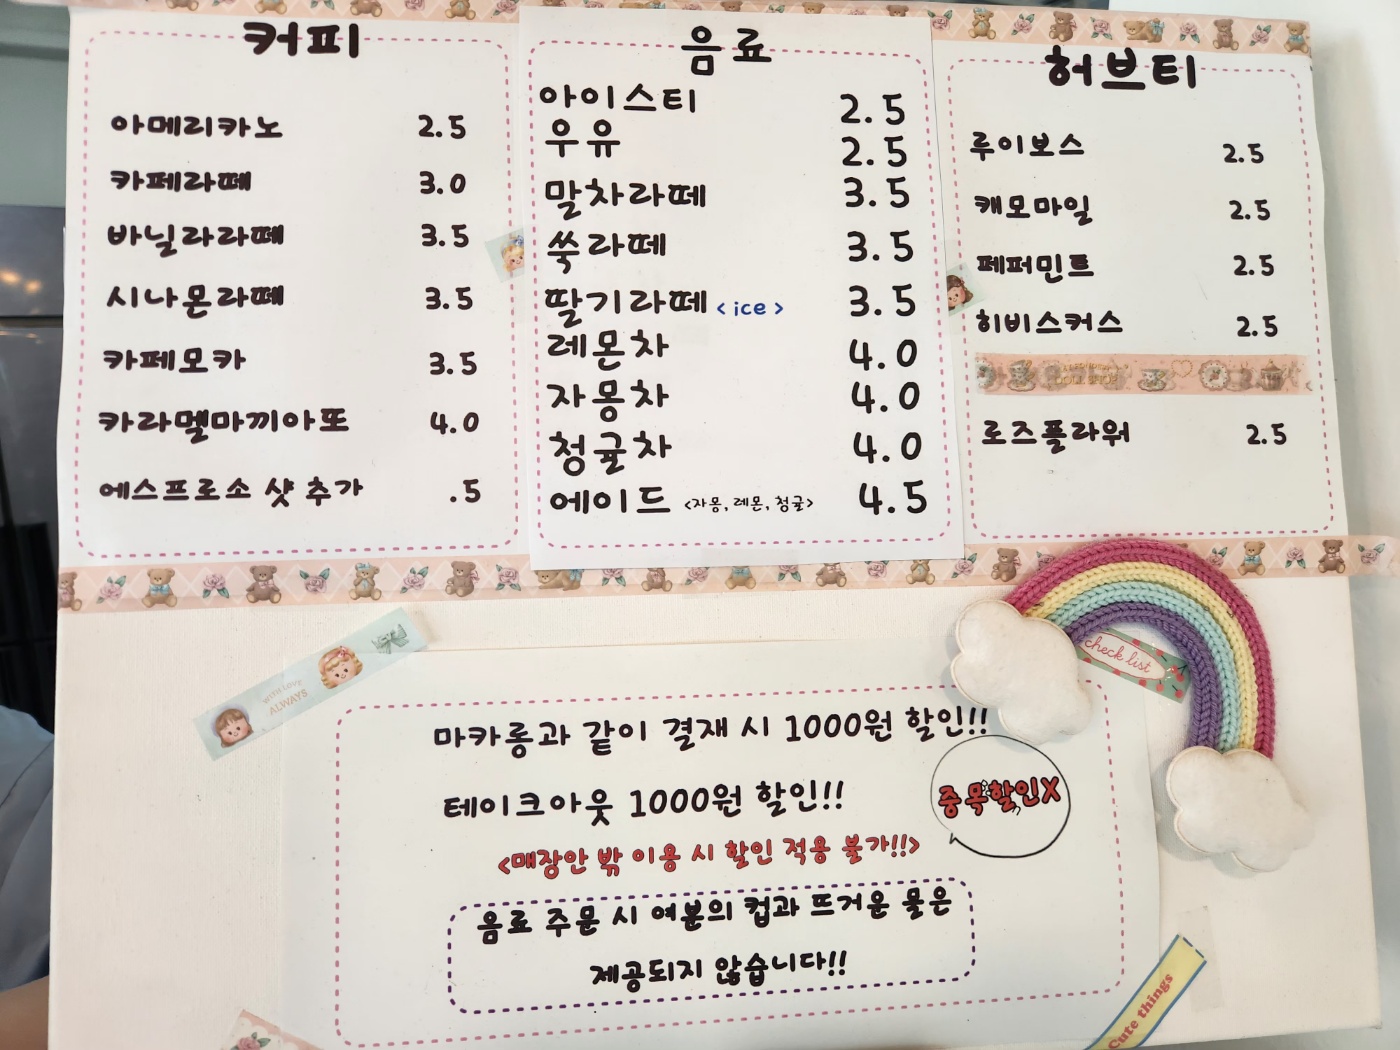 커피
아메리카노 2.5
카페라떼 3.0
바닐라라떼 3.5
시나몬라떼 3.5
카페모카 3.5
카라멜마끼아또 4.0
에스프로소 샷 추가 .5
음료
아이스티 2.5
우유 2.5
말차라떼 3.5
쑥라떼 3.5
딸기라떼 <ice> 3.5
레몬차 4.0
자몽차 4.0
청귤차 4.0
에이드 <자몽, 레몬, 청귤> 4.5
허브티
루이보스 2.5
캐모마일 2.5
페퍼민트 2.5
히비스커스 2.5
로즈플라워 2.5
WITH LOVE
ALWAYS
check list
마카롱과 같이 결재 시 1000원 할인!!
테이크아웃 1000원 할인!!
중복할인X
<매장안 밖 이용 시 할인 적용 불가!!>
음료 주문 시 여분의 컵과 뜨거운 물은
제공되지 않습니다!!
Cute things